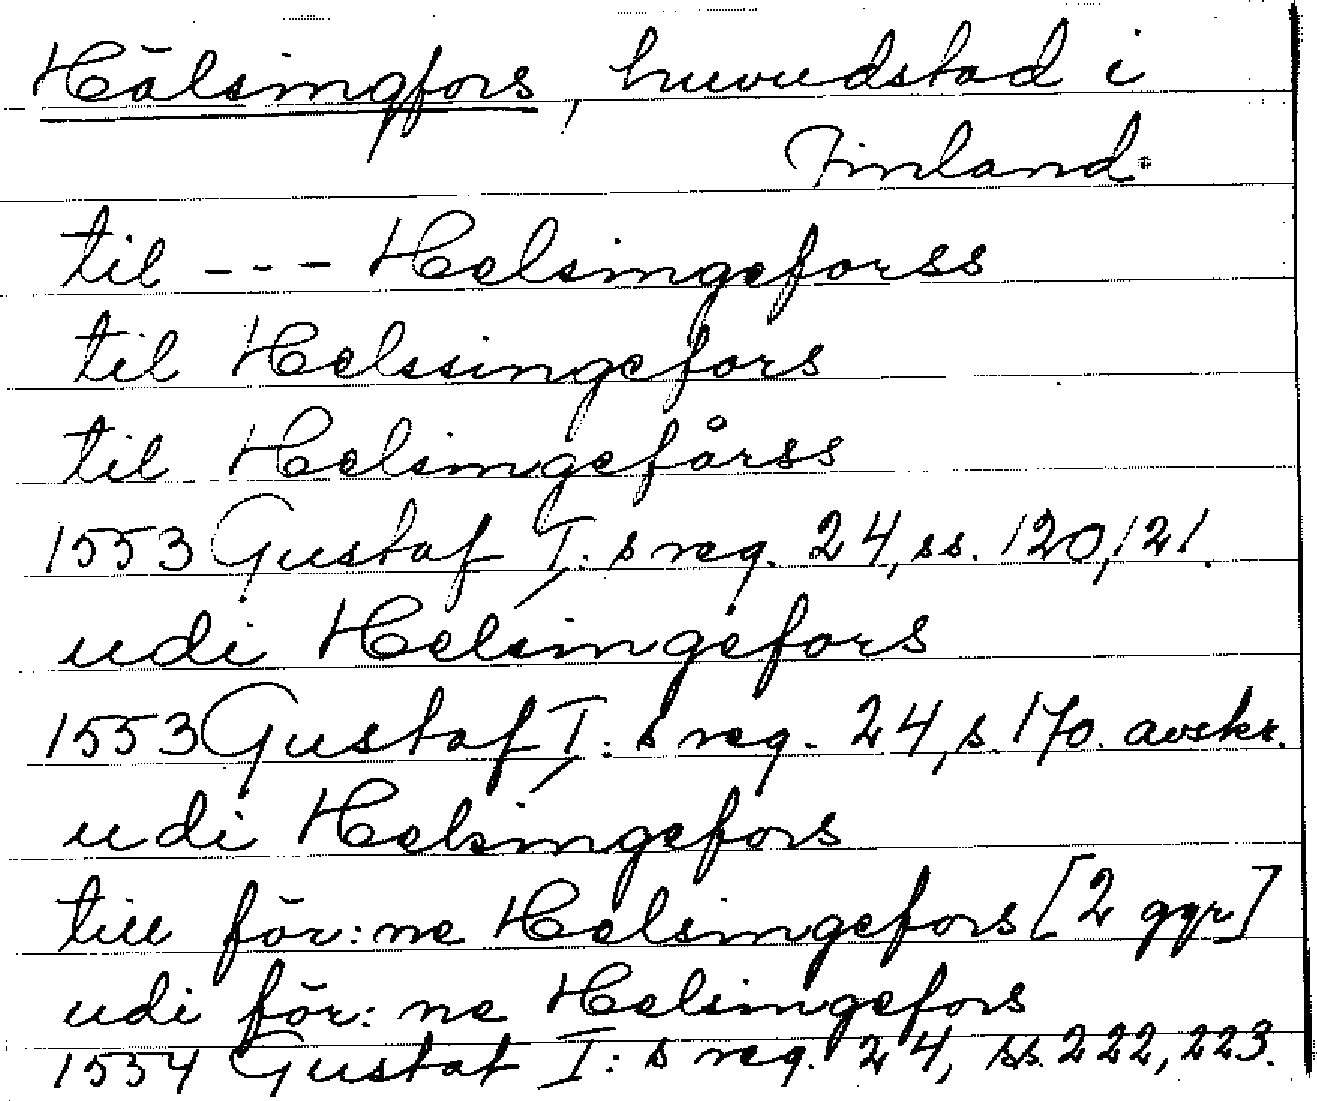 Hälsingfors, huvudstad i
Finland.
til --- Helsingeforss
til Helssingefors
til Helsingefårss
1553 Gustaf I:s reg. 24, ss. 120, 121.
udi Helsingefors
1553 Gustaf I:s reg. 24, s. 170. avskr.
udi Helsingefors
till för:ne Helsingefors [2 ggr]
udi för:ne Helsingefors
1554 Gustaf I:s reg. 24, ss. 222, 223.